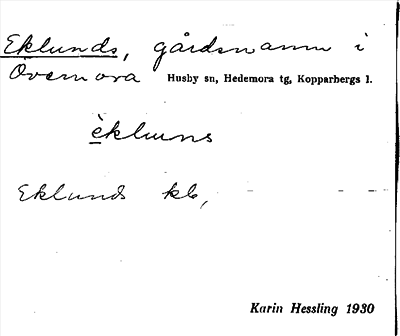 Eklunds, gårdsnamn i
Övernora Husby sn, Hedemora tg, Kopparbergs l.
èkluns
Eklunds kb,
Karin Hessling 1930